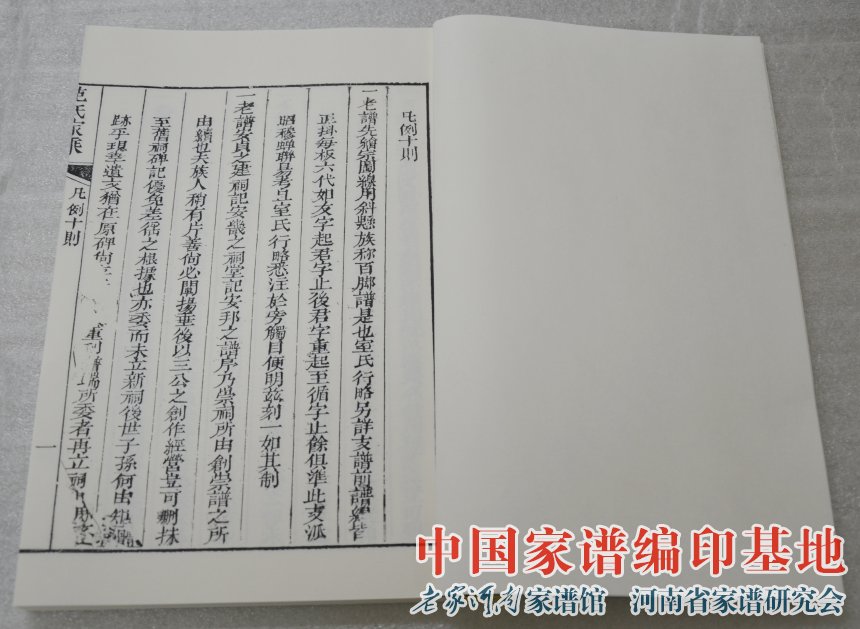 凡例十則
一老譜先繪宗圖線用斜懸族称百脚譜是也室氏行略另詳支譜前譜線皆
正掛每板六代如友字起君字止後君字重起至循字止餘俱準此支派
昭穆蟬聯易考且室氏行略悉注於旁觸目便明玆刻一如其制
一老譜安貞之建祠記安畿之祠堂記安邦之譜序乃崇祠所由創崇譜之所
由續也夫族人稍有片善尚必闡揚垂後以三公之創作經營豈可刪抹
至舊祠碑記優免差徭之根據也亦委而未立新祠後世子孫何由
跡乎現幸遺文猶在原碑尚
重刊譜端所委者再立祠
氏家乘
凡例十則
一
中国家谱编印基地
老家河南家谱馆 河南省家谱研究会